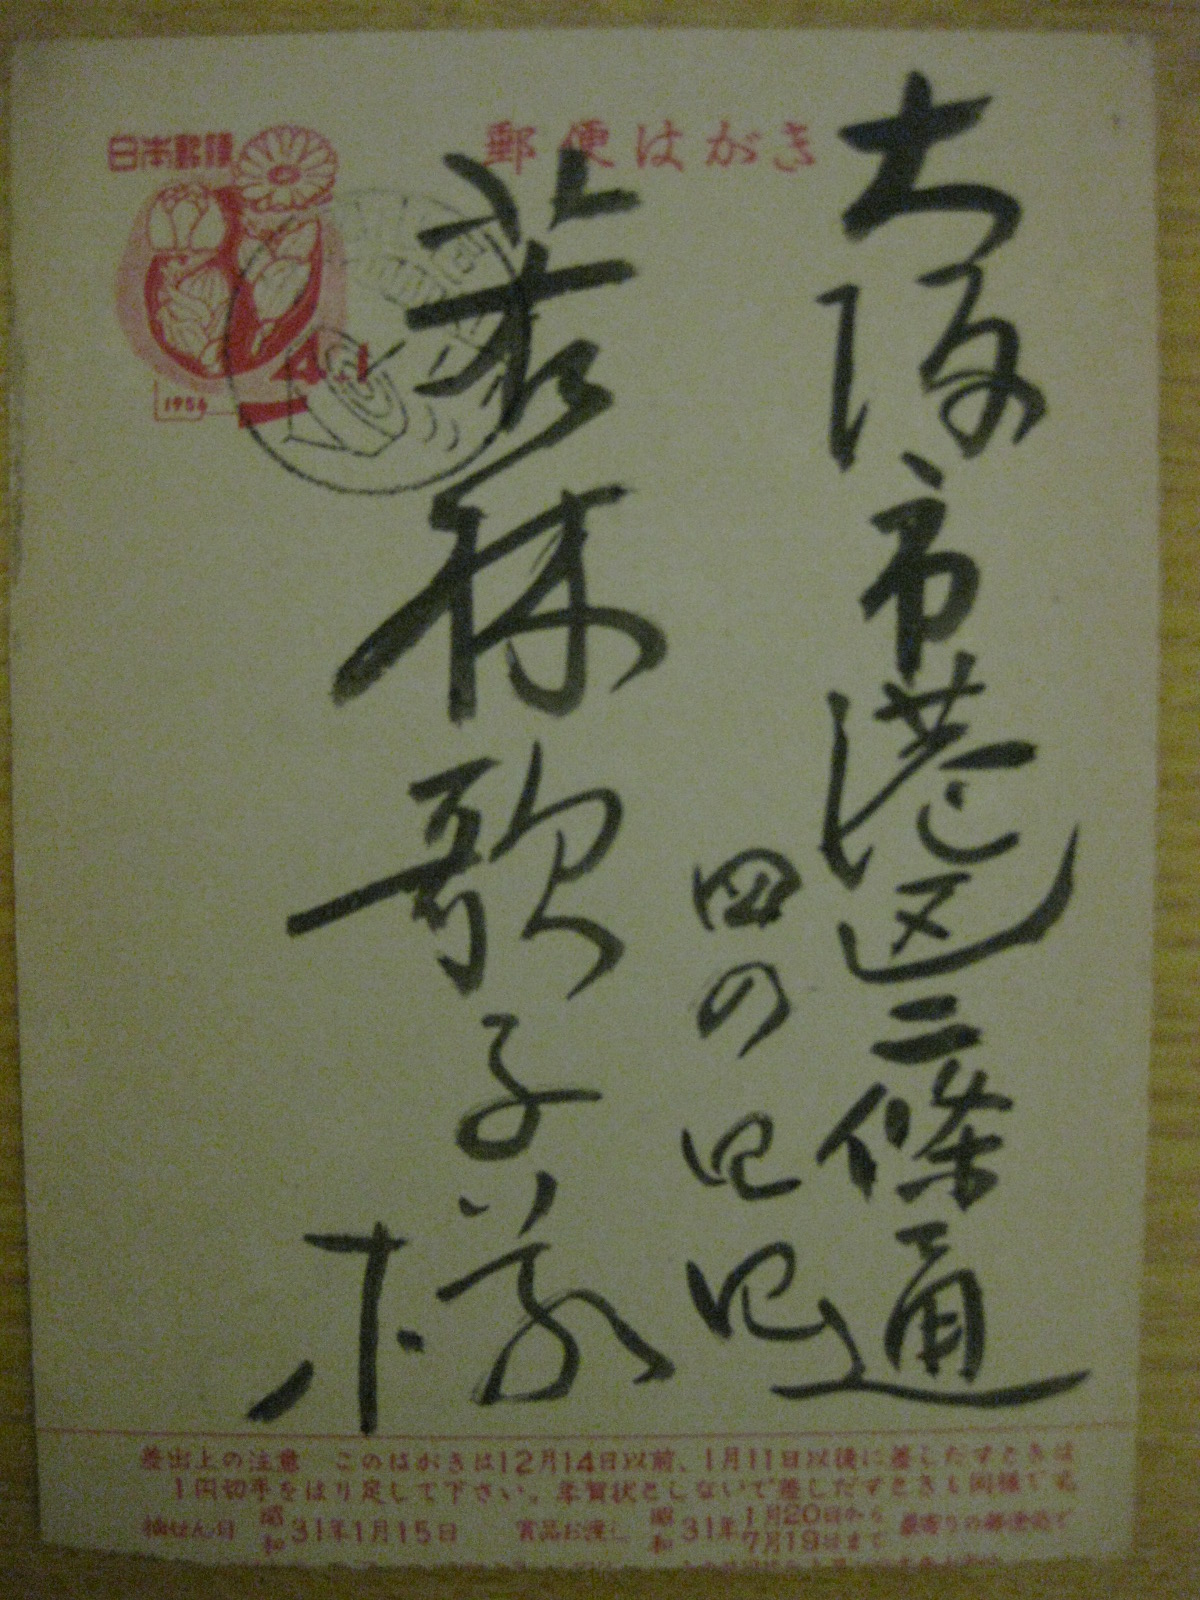 郵便はがき
日本郵便
4+1
1956
大阪市港区二條通
四の四四
若林歌子様
差出上の注意 このはがきは12月14日以前、1月11日以後に差しだすときは
1円切手をはり足して下さい。年賀状としないで差しだすときも同様です
抽せん日 昭和31年1月15日 賞品お渡し 昭和31年1月20日から7月19日まで 最寄りの郵便局で